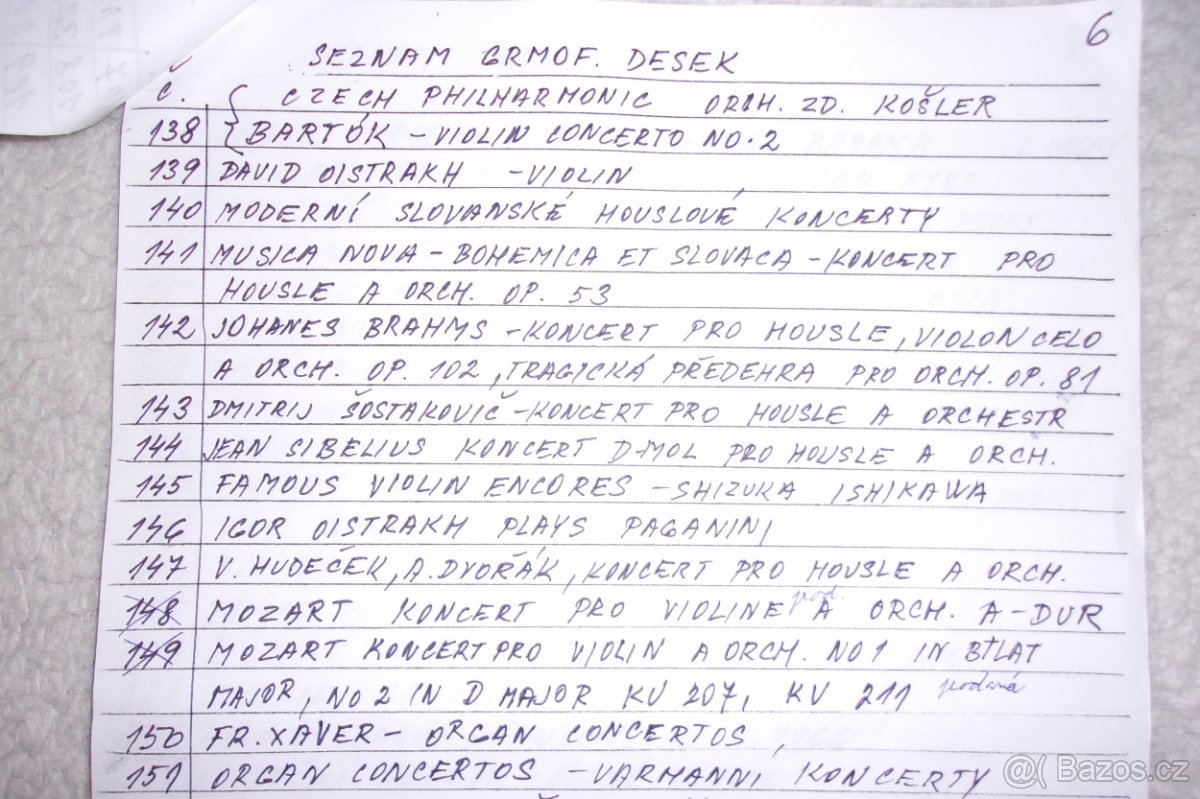 6
SEZNAM GRMOF. DESEK
Č. CZECH PHILHARMONIC ORCH. ZD. KOŠLER
138 BARTÓK - VIOLIN CONCERTO NO. 2
139 DAVID OISTRAKH - VIOLIN
140 MODERNÍ SLOVANSKÉ HOUSLOVÉ KONCERTY
141 MUSICA NOVA - BOHEMICA ET SLOVACA - KONCERT PRO
HOUSLE A ORCH. OP. 53
142 JOHANES BRAHMS - KONCERT PRO HOUSLE, VIOLONCELO
A ORCH. OP. 102, TRAGICKÁ PŘEDEHRA PRO ORCH. OP. 81
143 DMITRIJ ŠOSTAKOVIČ - KONCERT PRO HOUSLE A ORCHESTR
144 JEAN SIBELIUS KONCERT D-MOL PRO HOUSLE A ORCH.
145 FAMOUS VIOLIN ENCORES - SHIZUKA ISHIKAWA
146 IGOR OISTRAKH PLAYS PAGANINI
147 V. HUDEČEK, A. DVOŘÁK, KONCERT PRO HOUSLE A ORCH.
148 MOZART KONCERT PRO VIOLINE prod. A ORCH. A-DUR
149 MOZART KONCERT PRO VIOLIN A ORCH. NO 1 IN BFLAT
MAJOR, NO 2 IN D MAJOR KV 207, KV 211 prodaná
150 FR. XAVER - ORGAN CONCERTOS
151 ORGAN CONCERTOS - VARHANNÍ KONCERTY
@( Bazoš.cz